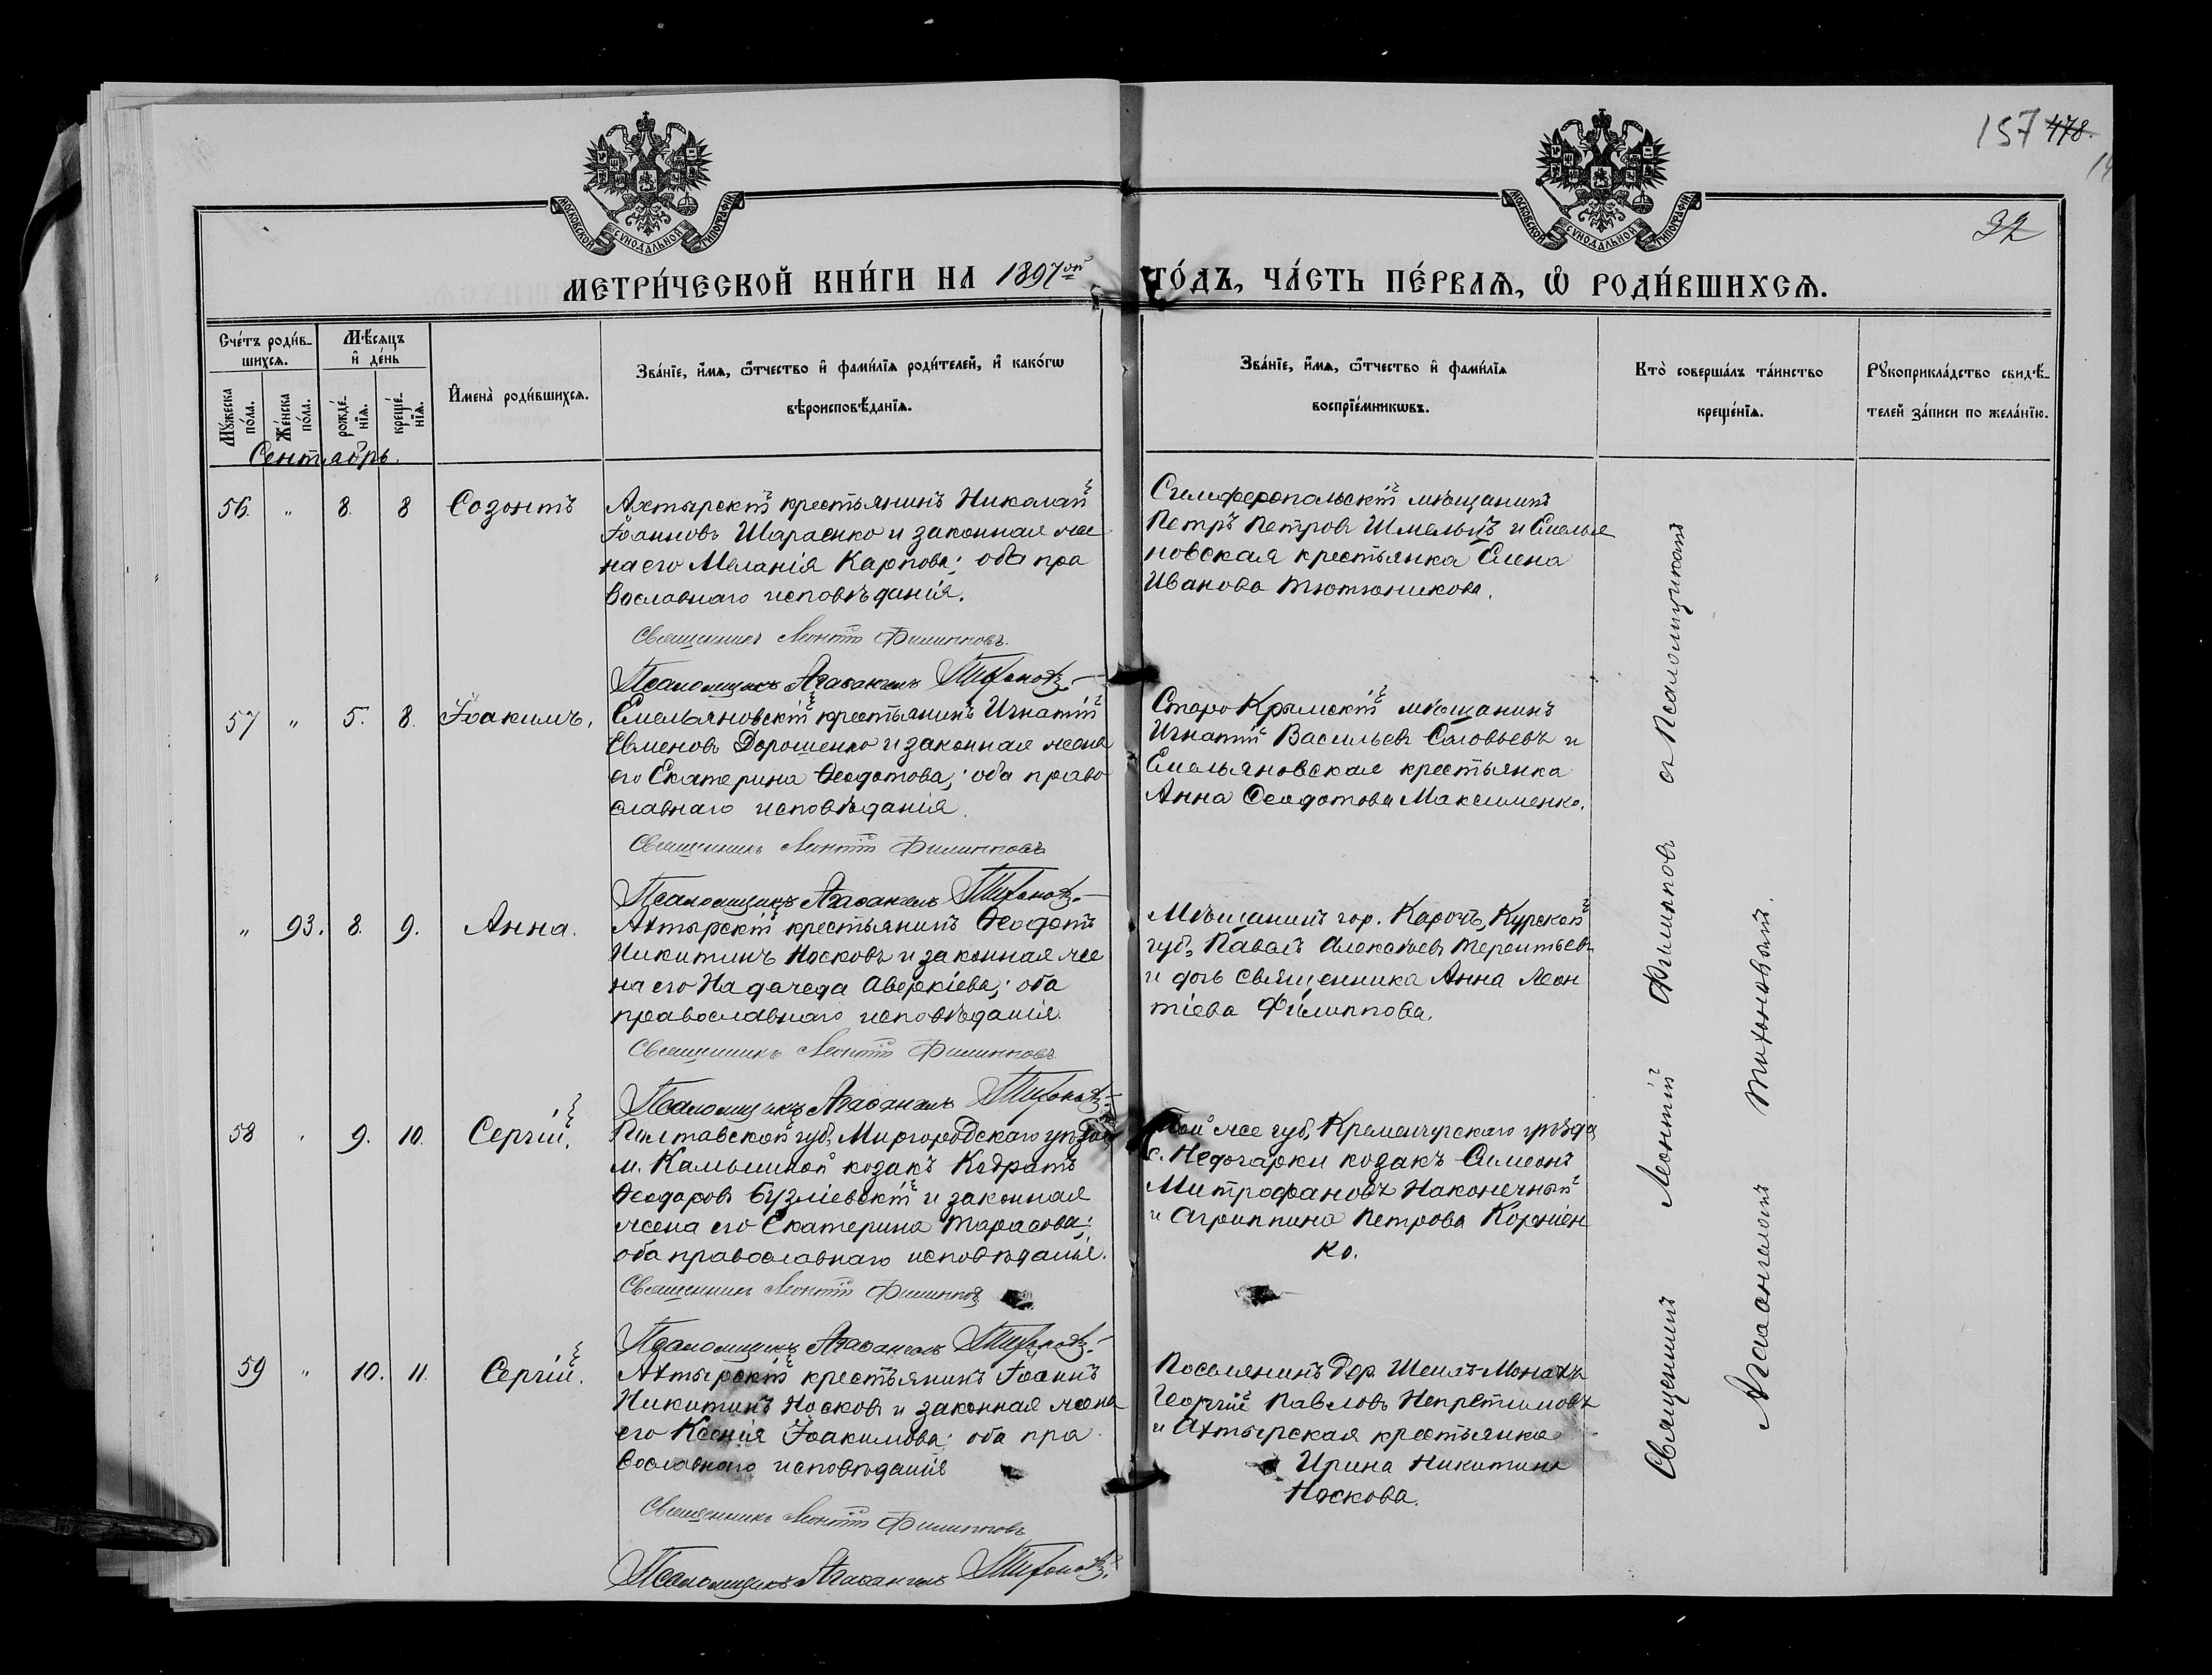 157 478.
14
32
МОСКОВСКОЙ СѴНОДАЛЬНОЙ ТИПОГРАФІИ
МОСКОВСКОЙ СѴНОДАЛЬНОЙ ТИПОГРАФІИ
МЕТРИ́ЧЕСКОЙ КНИ́ГИ НА 1897ой ГО́ДЪ, ЧА́СТЬ ПЕ́РВАѦ, Ѡ҆ РОДИ́ВШИХСѦ.
Сче́тъ роди́в-
шихсѧ.
Мѣ́сѧцъ
и҆ де́нь
Мꙋ́жеска
по́ла.
Же́нска
по́ла.
рожде́-
нїѧ.
креще́-
нїѧ.
И҆мена̀ роди́вшихсѧ.
Зва́нїе, и҆́мѧ, ѻ҆́тчество и҆ фами́лїѧ роди́телей, и҆ како́гѡ
вѣроисповѣ́данїѧ.
Зва́нїе, и҆́мѧ, ѻ҆́тчество и҆ фами́лїѧ
воспрїе́мникѡвъ.
Кто̀ соверша́лъ та́инство
креще́нїѧ.
Рꙋкоприкла́дство свидѣ́-
телей за́писи по жела́нїю.
Сентябрь.
56. " 8. 8 Созонтъ
Ахтырскій крестьянинъ Николай
Іоанновъ Шараенко и законная же
на его Меланія Карпова; оба пра
вославнаго исповѣданія.
Священникъ Леонтій Филипповъ.
Псаломщикъ Агаѳангелъ Тихоновъ.
Симферопольскій мѣщанинъ
Петръ Петровъ и Емелья
новская крестьянка Елена
Иванова Тютюникова.
57 " 5. 8. Іоакимъ.
Емельяновскій крестьянинъ Игнатій
Евменовъ Дорошенко и законная жена
его Екатерина Ѳеодотова; оба право
славнаго исповѣданія.
Священникъ Леонтій Филипповъ
Псаломщикъ Агаѳангелъ Тихоновъ.
Старо Крымскій мѣщанинъ
Игнатій Васильевъ Соловьевъ и
Емельяновская крестьянка
Анна Ѳеодотова Максименко.
" 93. 8. 9. Анна.
Ахтырскій крестьянинъ Ѳеодотъ
Никитинъ Носковъ и законная же
на его Надежда Аверкіева; оба
православнаго исповѣданія.
Священникъ Леонтій Филипповъ
Псаломщикъ Агаѳангелъ Тихоновъ.
Мѣщанинъ гор. Корочъ, Курской
губ. Павелъ Алексѣевъ Терентьевъ
и дочь священника Анна Леон
тіева Филиппова.
58 " 9. 10. Сергій.
Полтавской губ. Миргородскаго уѣзда
м. козакъ Кодратъ
Ѳеодоровъ и законная
жена его Екатерина Тарасова;
оба православнаго исповѣданія.
Священникъ Леонтій Филипповъ
Псаломщикъ Агаѳангелъ Тихоновъ.
Той же губ. Кременчугскаго уѣзда
с. Недогарки козакъ Симеонъ
Митрофановъ Наконечный
и Агриппина Петрова Корніен
ко.
59 " 10. 11. Сергій.
Ахтырскій крестьянинъ Іоаннъ
Никитинъ Носковъ и законная жена
его Ксенія Іоакимова; оба пра
вославнаго исповѣданія
Священникъ Леонтій Филипповъ
Псаломщикъ Агаѳангелъ Тихоновъ.
Поселянинъ дер. Шеихъ-Монахъ
Георгій Павловъ
и Ахтырская крестьянка
Ирина Никитина
Носкова.
Священникъ Леонтій Филипповъ съ Псаломщикомъ
Агаѳангеломъ Тихоновымъ.